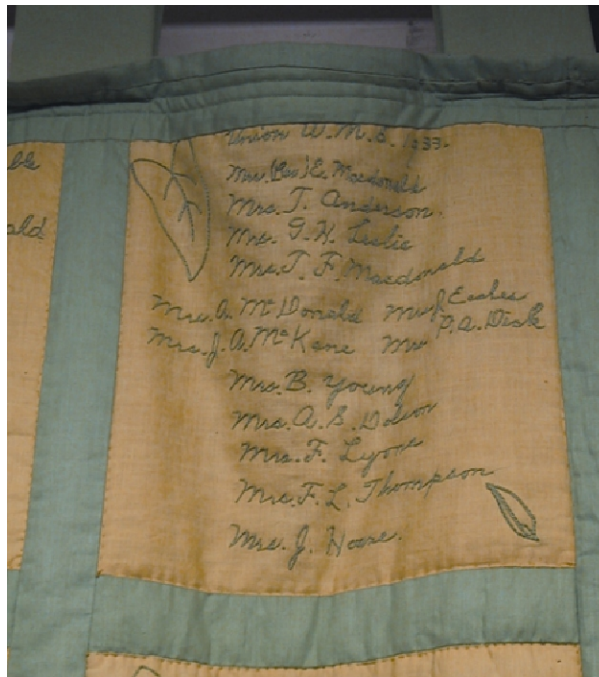 ble
ald
Union W.M.S. 1933.
Mrs. (Rev.) E. Macdonald
Mrs. T. Anderson.
Mrs. G. H. Leslie
Mrs. T. F. Macdonald
Mrs. A. McDonald Mrs. J. Eashes
Mrs. J. A. McKane Mrs. P. A.
Mrs. B. Young
Mrs. A. S.
Mrs. F. Lyons
Mrs. F. L. Thompson
Mrs. J. Hoare.